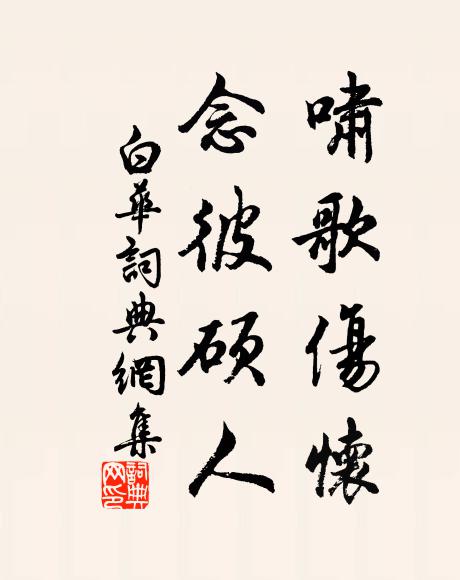 嘯歌傷懷
念彼碩人
白華詞典網集
詞典網印